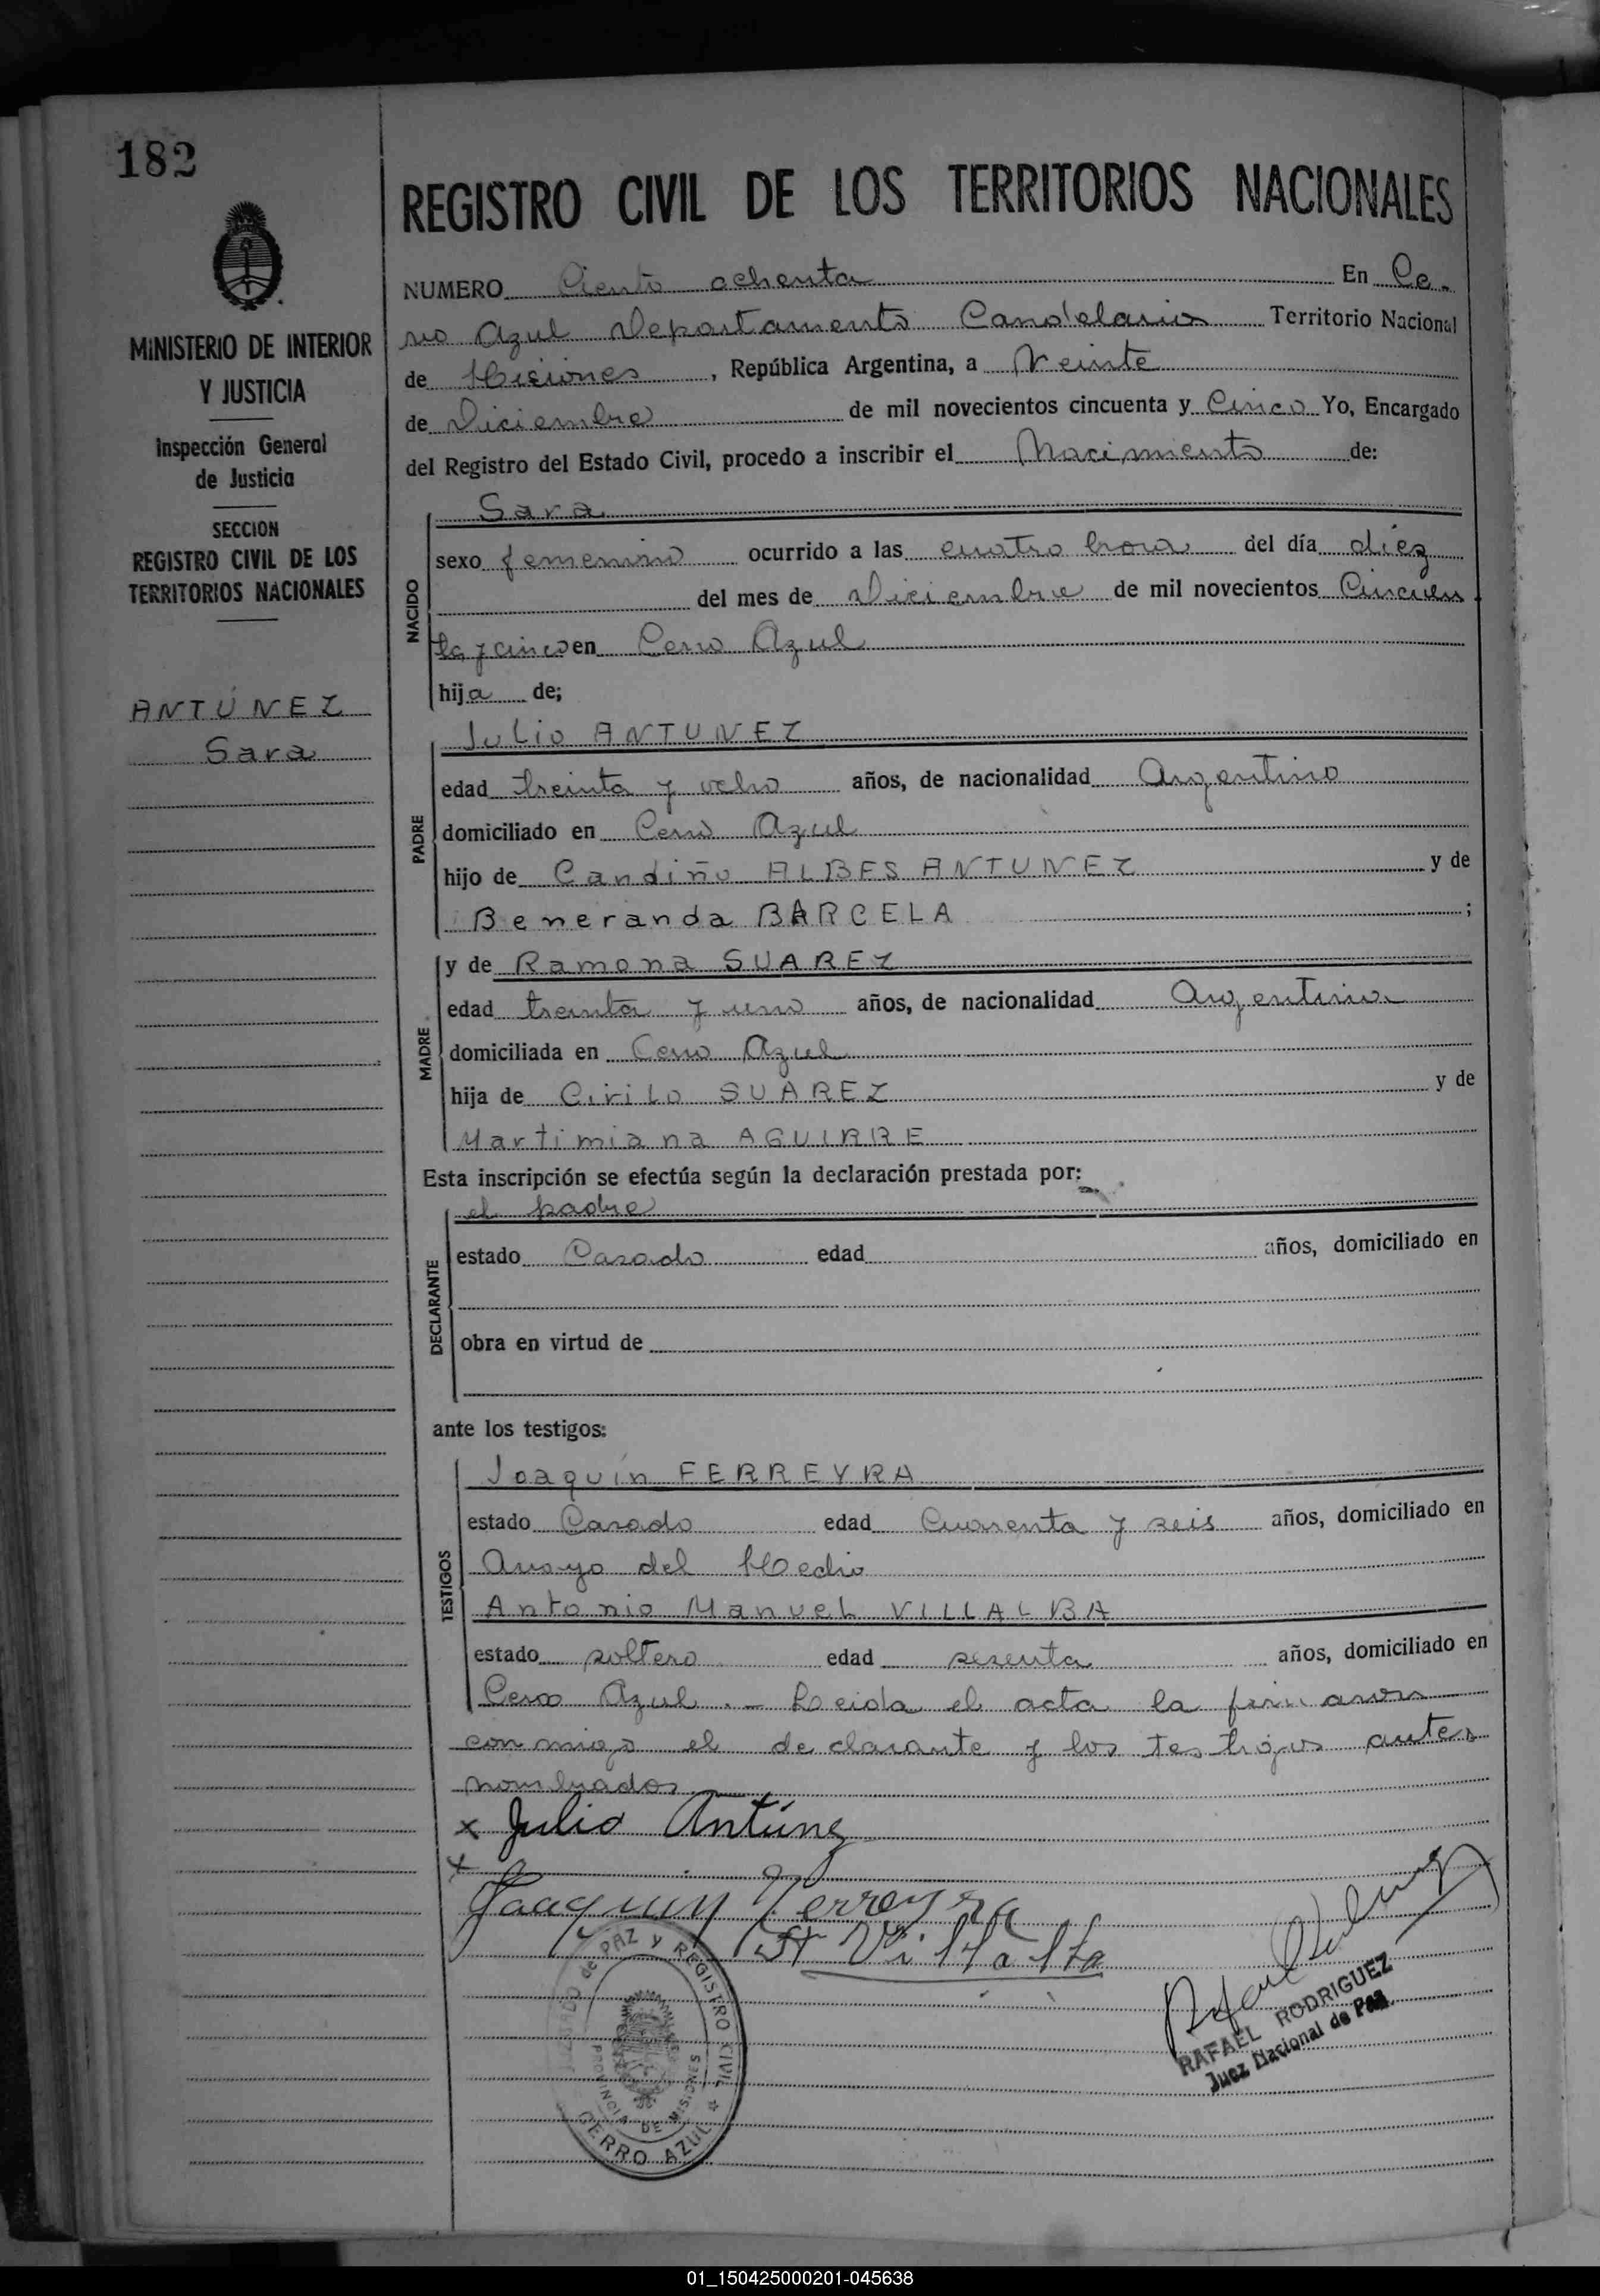 182
REGISTRO CIVIL DE LOS TERRITORIOS NACIONALES
MINISTERIO DE INTERIOR
Y JUSTICIA
Inspección General
de Justicia
SECCION
REGISTRO CIVIL DE LOS
TERRITORIOS NACIONALES
ANTÚNEZ
Sara
NUMERO Ciento ochenta En Ce-
rro Azul Departamento Candelaria Territorio Nacional
de Misiones, República Argentina, a Veinte
de Diciembre de mil novecientos cincuenta y Cinco Yo, Encargado
del Registro del Estado Civil, procedo a inscribir el Nacimiento de:
NACIDO
Sara
sexo femenino ocurrido a las cuatro hora del día diez
del mes de Diciembre de mil novecientos Cincuen
ta y cinco en Cerro Azul
hija de;
PADRE
Julio ANTUNEZ
edad treinta y ocho años, de nacionalidad Argentino
domiciliado en Cerro Azul
hijo de Candiño ALBES ANTUNEZ y de
Beneranda BARCELA ;
MADRE
y de Ramona SUAREZ
edad treinta y uno años, de nacionalidad Argentina
domiciliada en Cerro Azul
hija de Cirilo SUAREZ y de
Martimiana AGUIRRE
Esta inscripción se efectúa según la declaración prestada por:
DECLARANTE
el padre
estado Casado edad años, domiciliado en
obra en virtud de
ante los testigos:
TESTIGOS
Joaquín FERREYRA
estado Casado edad Cuarenta y seis años, domiciliado en
Arroyo del Medio
Antonio Manuel VILLALBA
estado soltero edad sesenta años, domiciliado en
Cerro Azul.- Leida el acta la firmaron
conmigo el declarante y los testigos antes
nombrados
x Julio Antúnez
x
Joaquin Ferreyra
A Villalba
JUZGADO de PAZ y REGISTRO CIVIL
PROVINCIA DE MISIONES
CERRO AZUL
RAFAEL RODRIGUEZ
Juez Nacional de Paz
01_150425000201-045638